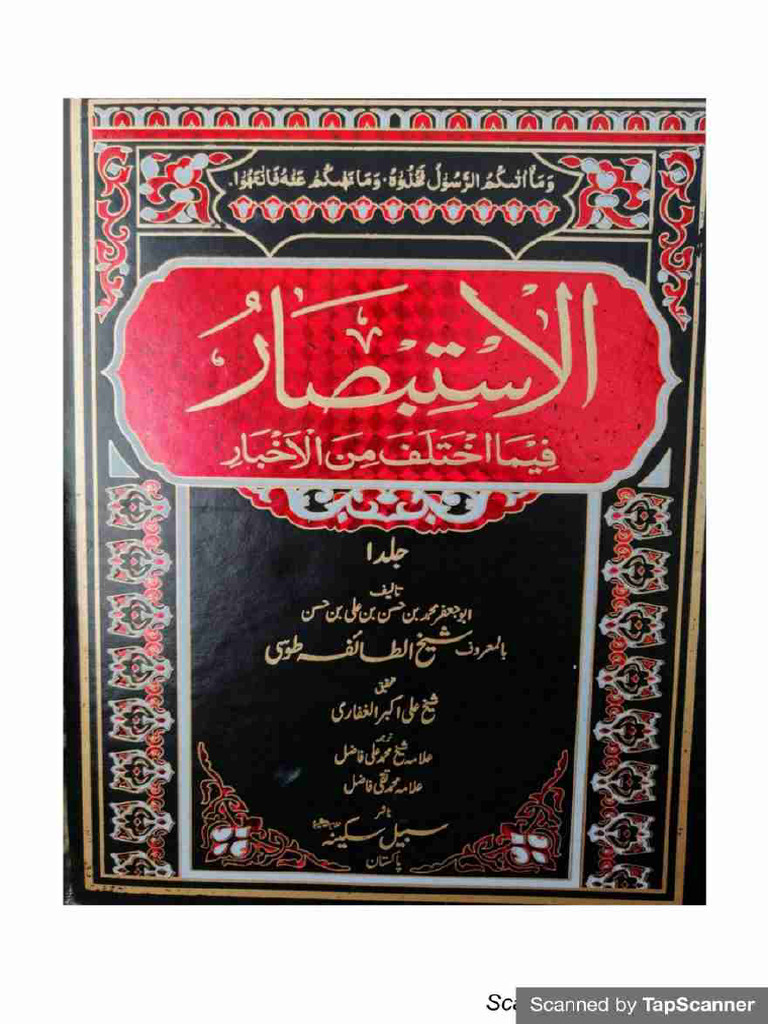 وَمَآ اٰتٰىكُمُ الرَّسُوْلُ فَخُذُوْهُ ٠ وَمَا نَهٰىكُمْ عَنْهُ فَانْتَهُوْا.
الْاِسْتِبْصَارُ
فِيْمَا اخْتَلَفَ مِنَ الْاَخْبَارِ
جلد ا
تالیف
ابو جعفر محمد بن حسن بن علی بن حسن
بالمعروف شیخ الطائفہ طوسی
تحقیق
شیخ علی اکبر الغفاری
ترجمہ
علامہ شیخ محمد علی فاضل
علامہ محمد تقی فاضل
ناشر
سبیل سکینہ
پاکستان
Sca
Scanned by TapScanner